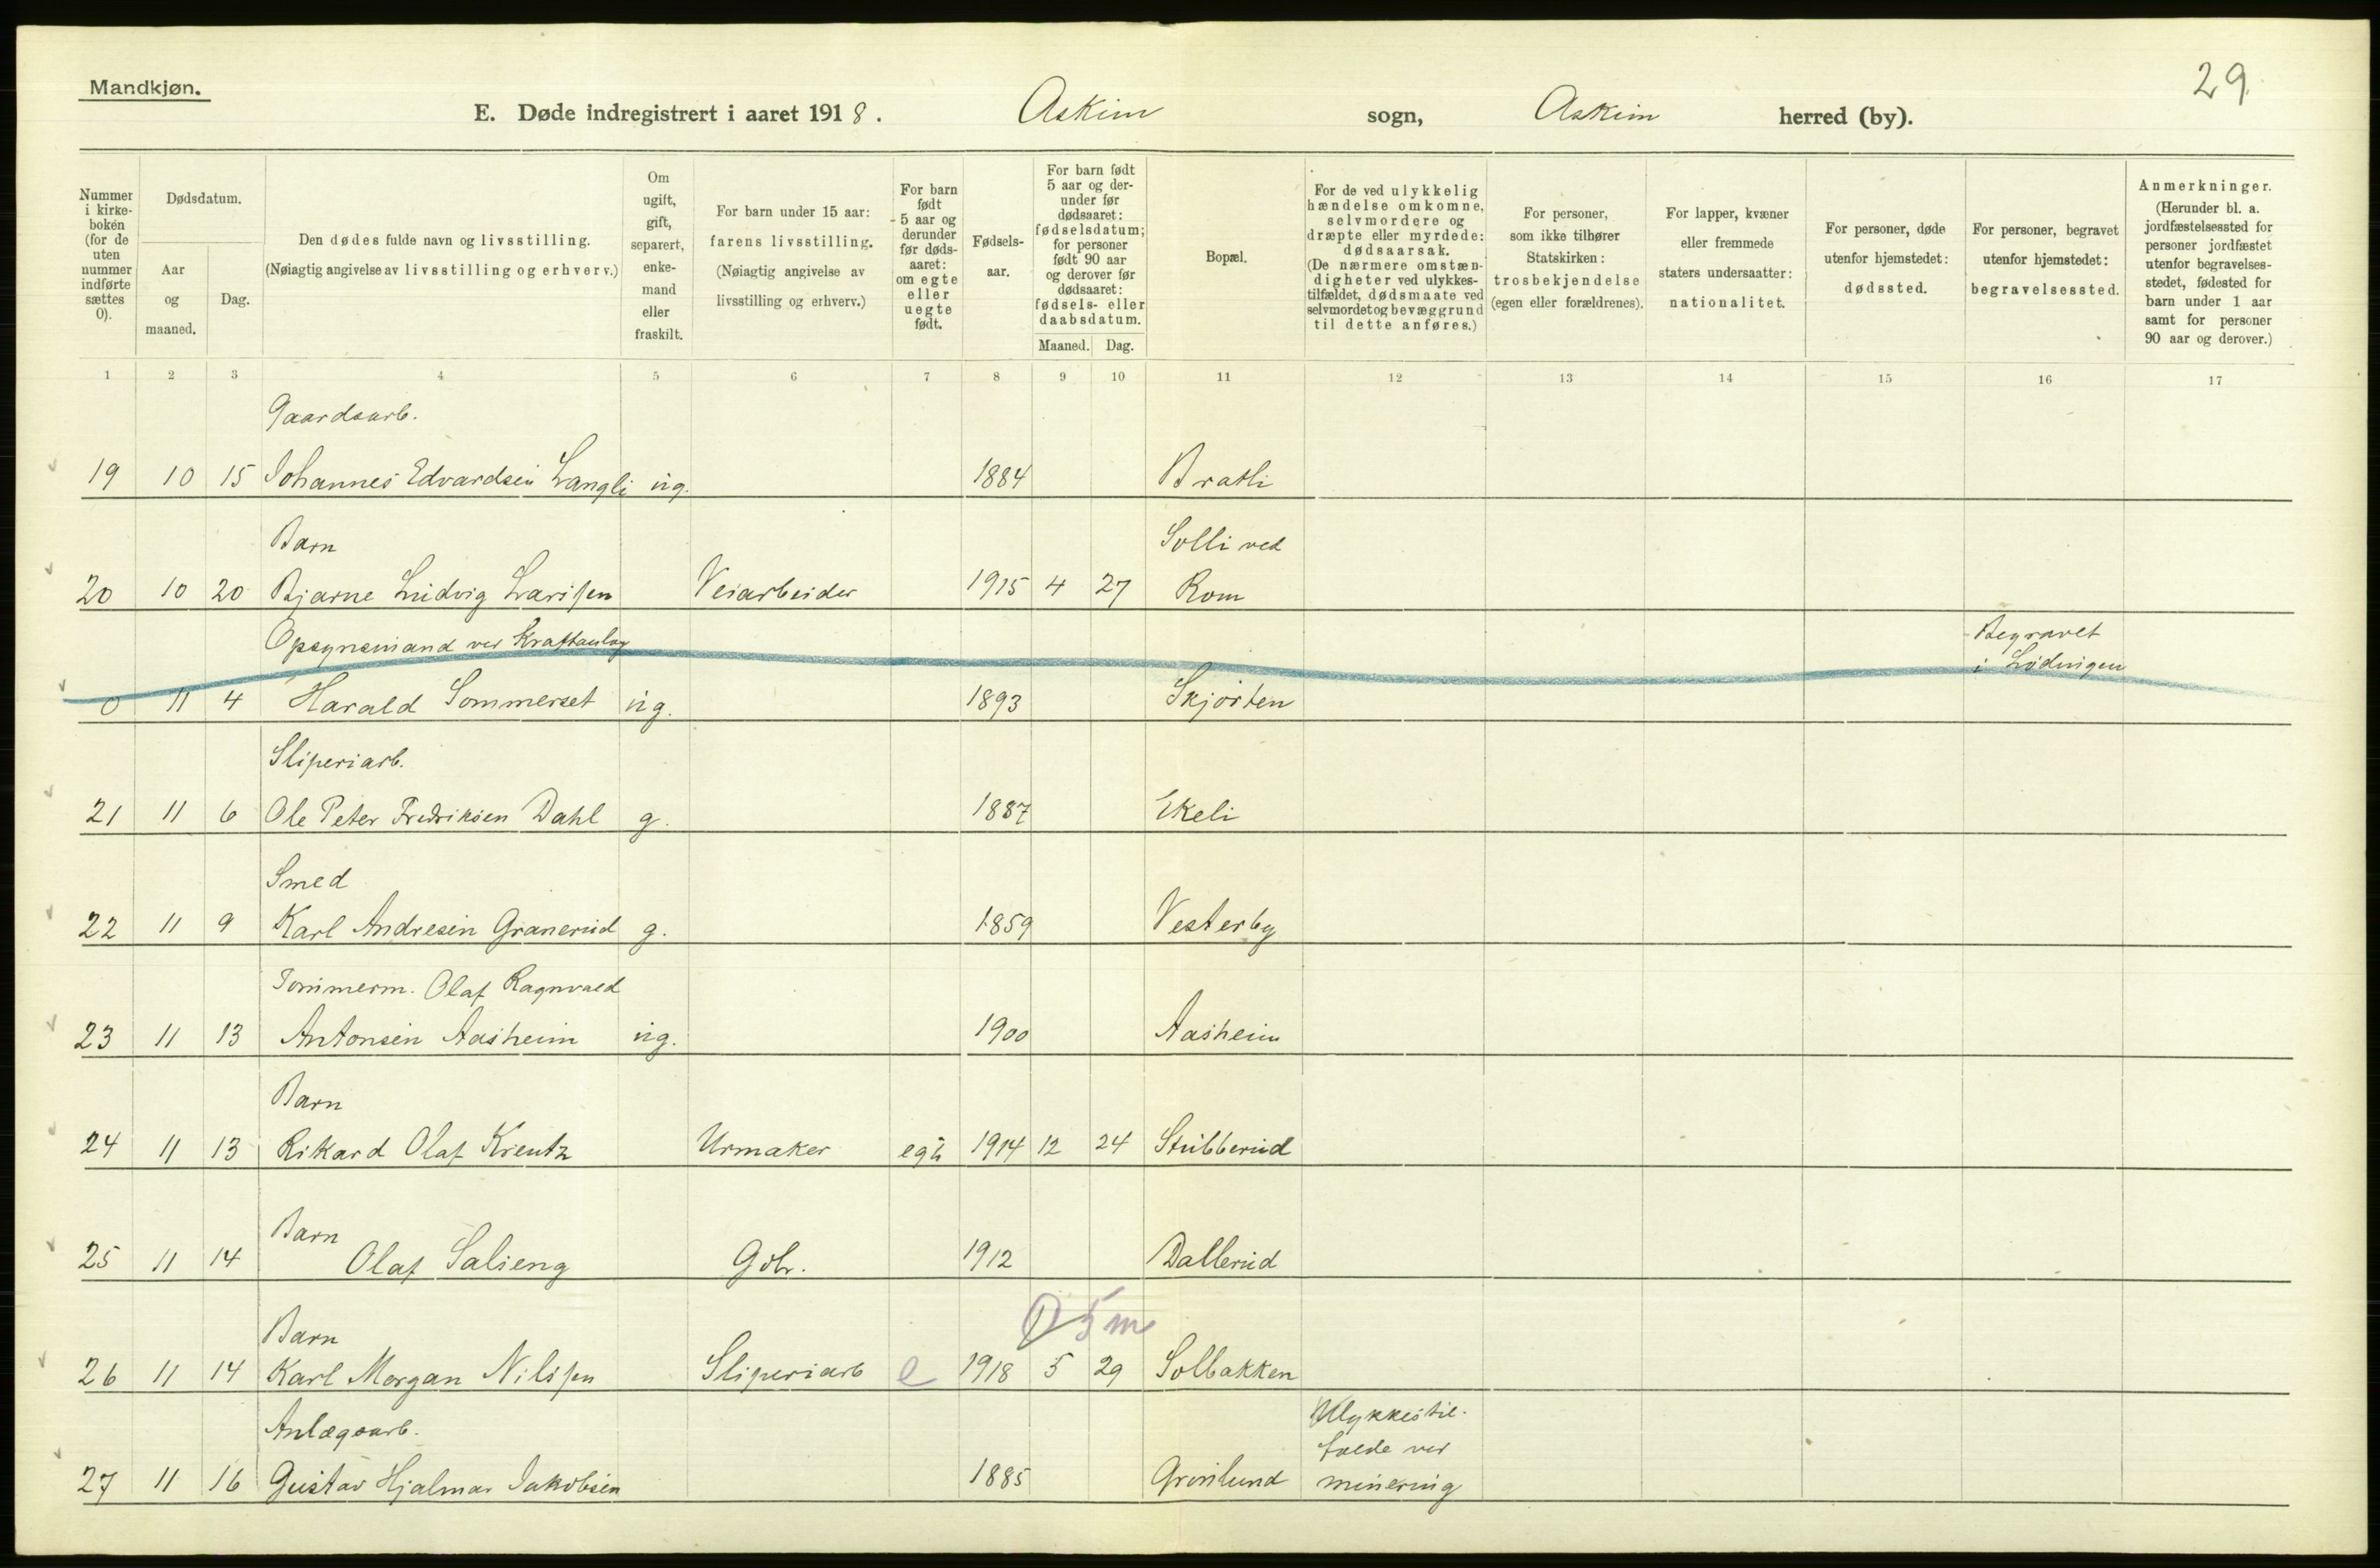 Mandkjøn.
29
E. Døde indregistrert i aaret 1918. Askim sogn, Askim herred (by).
Nummer i kirke- boken (for de uten nummer indførte sættes 0).
Dødsdatum.
Aar og maaned.
Dag.
Den dødes fulde navn og livsstilling.
(Nøiagtig angivelse av livsstilling og erhverv.)
Om ugift, gift, separert, enke- mand eller fraskilt.
For barn under 15 aar: farens livsstilling. (Nøiagtig angivelse av livsstilling og erhverv.)
For barn født 5 aar og derunder før døds- aaret: om egte eller uegte født.
Fødsels- aar.
For barn født 5 aar og der- under før dødsaaret: fødselsdatum; for personer født 90 aar og derover før dødsaaret: fødsels- eller daabsdatum.
Maaned. Dag.
Bopæl.
For de ved ulykkelig hændelse omkomne, selvmordere og dræpte eller myrdede: dødsaarsak. (De nærmere omstæn- digheter ved ulykkes- tilfældet, dødsmaate ved selvmordet og bevæggrund til dette anføres.)
For personer, som ikke tilhører Statskirken: trosbekjendelse (egen eller forældrenes).
For lapper, kvæner eller fremmede staters undersaatter: nationalitet.
For personer, døde utenfor hjemstedet: dødssted.
For personer, begravet utenfor hjemstedet: begravelsessted.
Anmerkninger. (Herunder bl. a. jordfæstelsessted for personer jordfæstet utenfor begravelses- stedet, fødested for barn under 1 aar samt for personer 90 aar og derover.)
1 2 3 4 5 6 7 8 9 10 11 12 13 14 15 16 17
Gaardsarb.
19 10 15 Johannes Edvardsen Langli ug. 1884 Bratli
Barn Solli ved
20 10 20 Bjarne Ludvig Larissen Veiarbeider 1915 4 27 Rom
Opsynsmand ved Kraftanlæg Begravet
i Lødingen
0 11 4 Harald Sommerset ug. 1893 Skjørten
Sliperiarb.
21 11 6 Ole Peter Fredriksen Dahl g. 1887 Ekeli
Smed
22 11 9 Karl Andresen Granerud g. 1859 Vesterby
Tømmerm. Olaf Ragnvald
23 11 13 Antonsen Aasheim ug. 1900 Aasheim
Barn
24 11 13 Rikard Olaf Kreutz Urmaker 1914 12 24 Stubberud
Barn
25 11 14 Olaf Salieng Gbr. 1912 Dallerud
5 m
Barn
26 11 14 Karl Morgan Nilssen Sliperiarb e 1918 5 29 Solbakken
Anlægsarb. Ulykkestil-
fælde ved
27 11 16 Gustav Hjalmar Jakobsen 1885 Grønlund minering